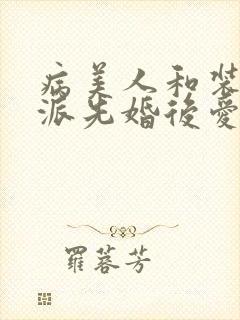 病美人和装
派先婚後愛
羅蓉芳